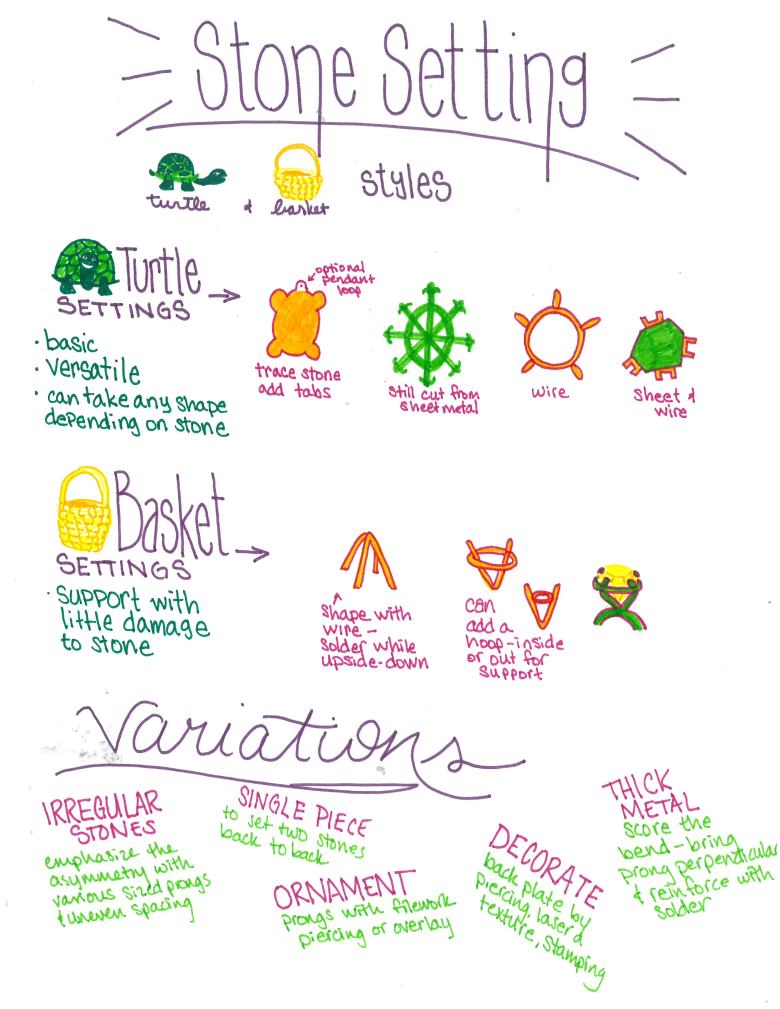 Stone Setting
turtle & basket styles
Turtle
SETTINGS
· basic
· versatile
· can take any shape
depending on stone
optional
pendant
loop
trace stone
add tabs
still cut from
sheet metal
wire
sheet &
wire
Basket
SETTINGS
· support with
little damage
to stone
shape with
wire –
solder while
upside-down
can
add a
hoop-inside
or out for
support
Variations
IRREGULAR
STONES
emphasize the
asymmetry with
various sized prongs
& uneven spacing
SINGLE PIECE
to set two stones
back to back
ORNAMENT
prongs with filework
piercing or overlay
DECORATE
back plate by
piercing, laser &
texture, stamping
THICK
METAL
score the
bend – bring
prong perpendicular
& reinforce with
solder